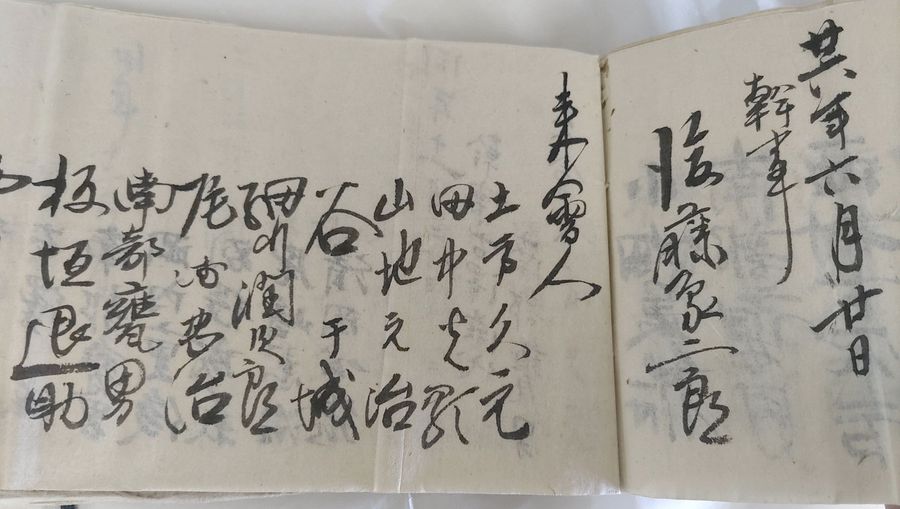 廿六年六月廿日
幹事
後藤象二郎
来會人
土方久元
田中光顕
山地元治
谷干城
細川潤次郎
尾崎忠治
南部甕男
板垣退助